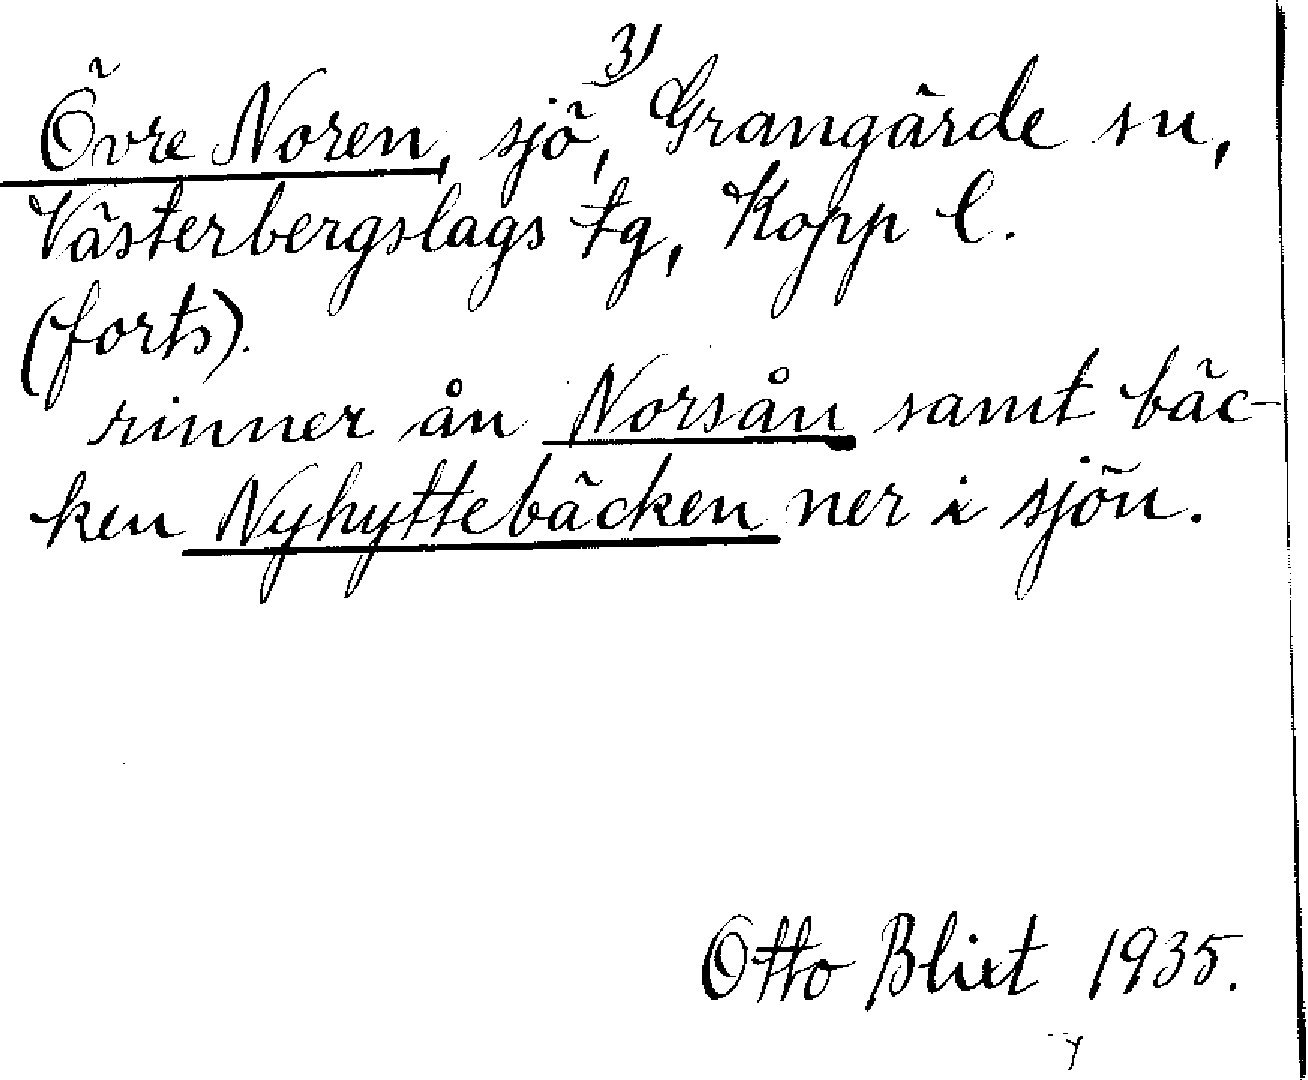 3)
Övre Noren, sjö, Grangärde sn,
Västerbergslags tg, Kopp l.
(forts).
rinner ån Norsån samt bäc-
ken Nyhyttebäcken ner i sjön.
Otto Blixt 1935.